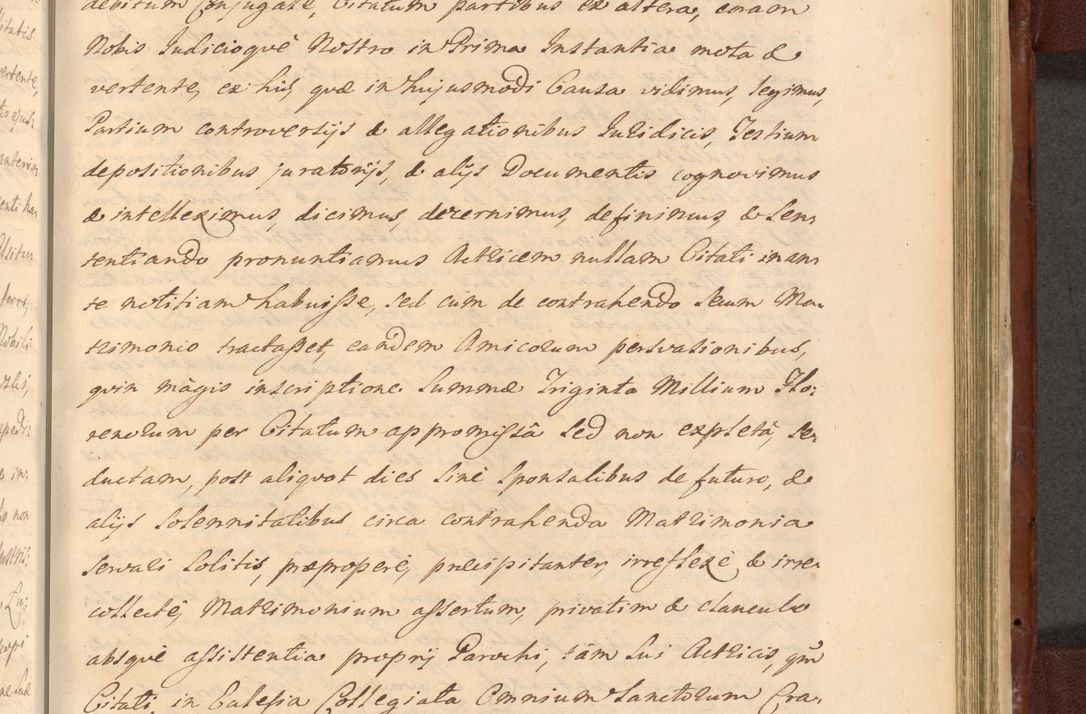 debitum Conjugale, Citatum partibus ex altera, coram
Nobis Iudicioque Nostro in Prima Instantia mota &
vertente, ex his, quæ in hujusmodi Causa vidimus, legimus,
Partium controversijs & allegationibus Iuridicis, Testium
depositionibus juratorijs, & alijs Documentis cognovimus
& intelleximus, dicimus, decernimus, definimus, & Sen:
tentiando pronuntiamus Actricem nullam Citati in an:
te notitiam habuisse, sed cùm de contrahendo secum Ma:
trimonio tractasset, eandem Amicorum persvasionibus,
qvin màgis inscriptione Summæ Triginta Millium Flo:
renorum per Citatum appromissâ sed non expletâ, se:
ductam, post aliqvot dies sinè Sponsalibus de futuro, &
alijs Solennitatibus circa contrahenda Matrimonia
servari solitis, præproperè, præcipitanter, irreflexè & irre:
collectè, Matrimonium assertum, privatim & clanculo
absquè assistentia proprij Parochi, tàm sui Actricis, qm̃
Citati, in Eclesia Collegiata Omnium Sanctorum Cra: